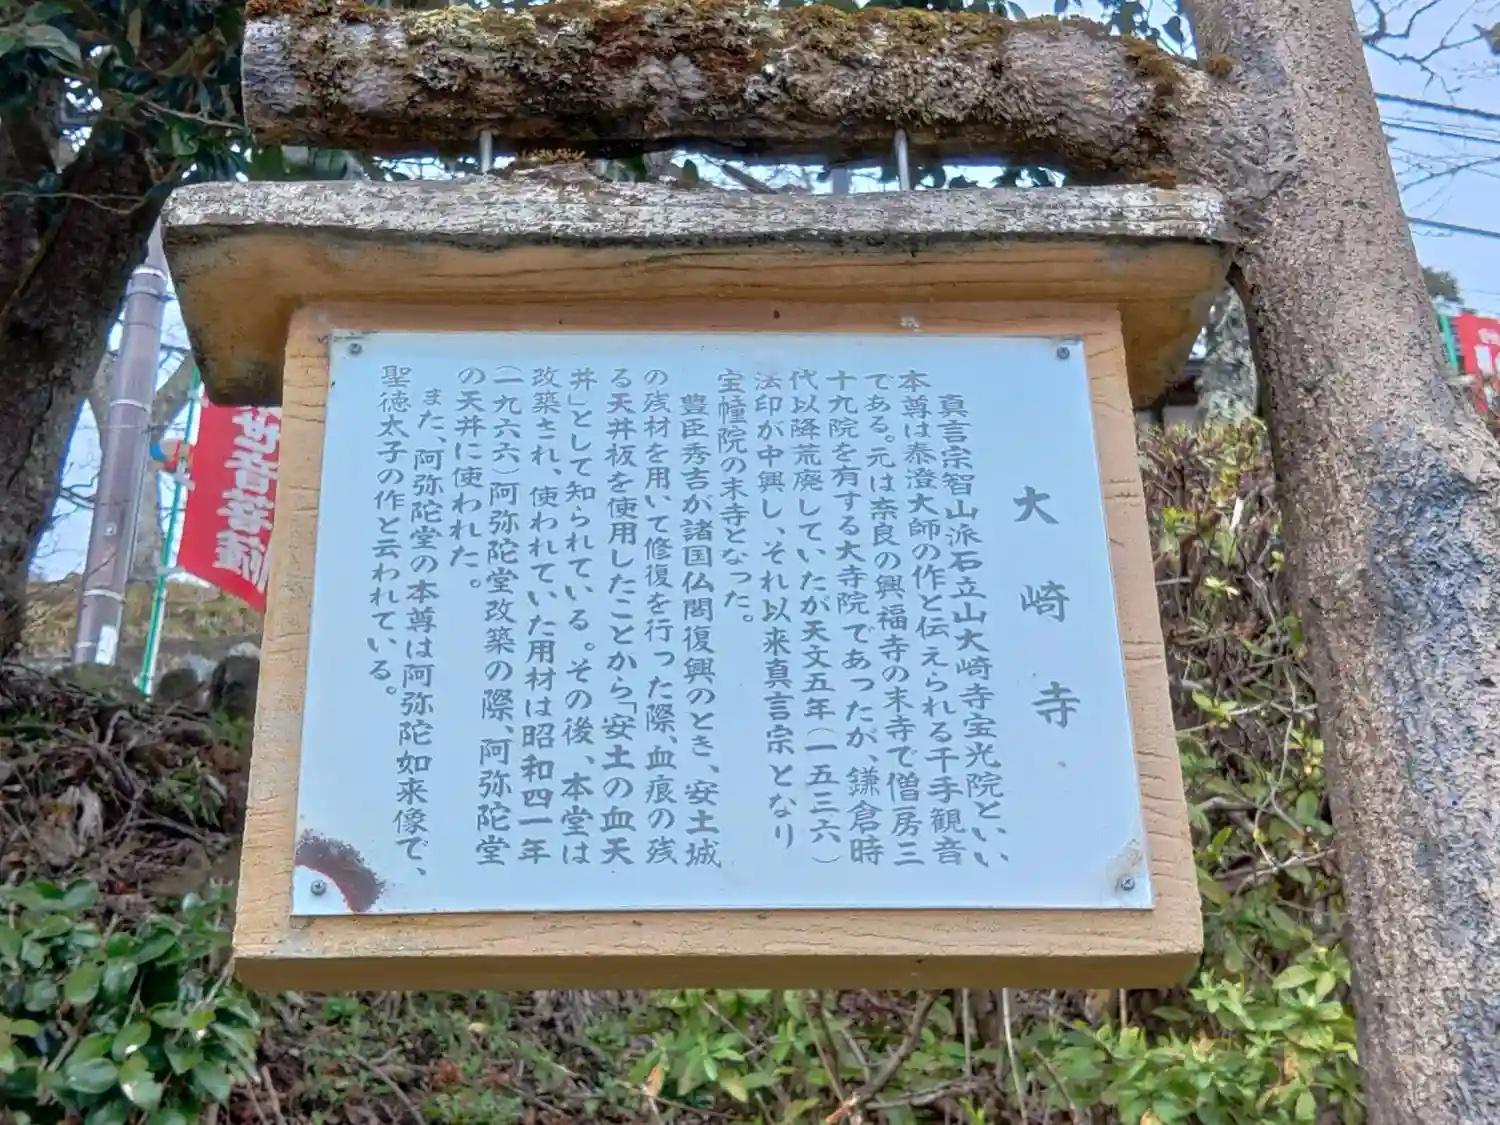 大崎寺
真言宗智山派石立山大崎寺宝光院といい
本尊は泰澄大師の作と伝えられる千手観音
である。元は奈良の興福寺の末寺で僧房三
十九院を有する大寺院であったが、鎌倉時
代以降荒廃していたが天文五年(一五三六)
法印が中興し、それ以来真言宗となり
宝幢院の末寺となった。
豊臣秀吉が諸国仏閣復興のとき、安土城
の残材を用いて修復を行った際、血痕の残
る天井板を使用したことから「安土の血天
井」として知られている。その後、本堂は
改築され、使われていた用材は昭和四一年
(一九六六)阿弥陀堂改築の際、阿弥陀堂
の天井に使われた。
また、阿弥陀堂の本尊は阿弥陀如来像で、
聖徳太子の作と云われている。
世音菩薩